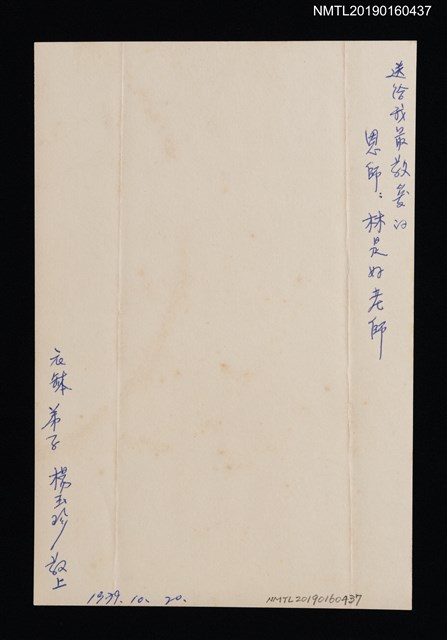 NMTL20190160437
送給我最敬愛的
恩師：林是好老師
衣缽弟子 楊玉珍 敬上
1979. 10. 20.
NMTL20190160437